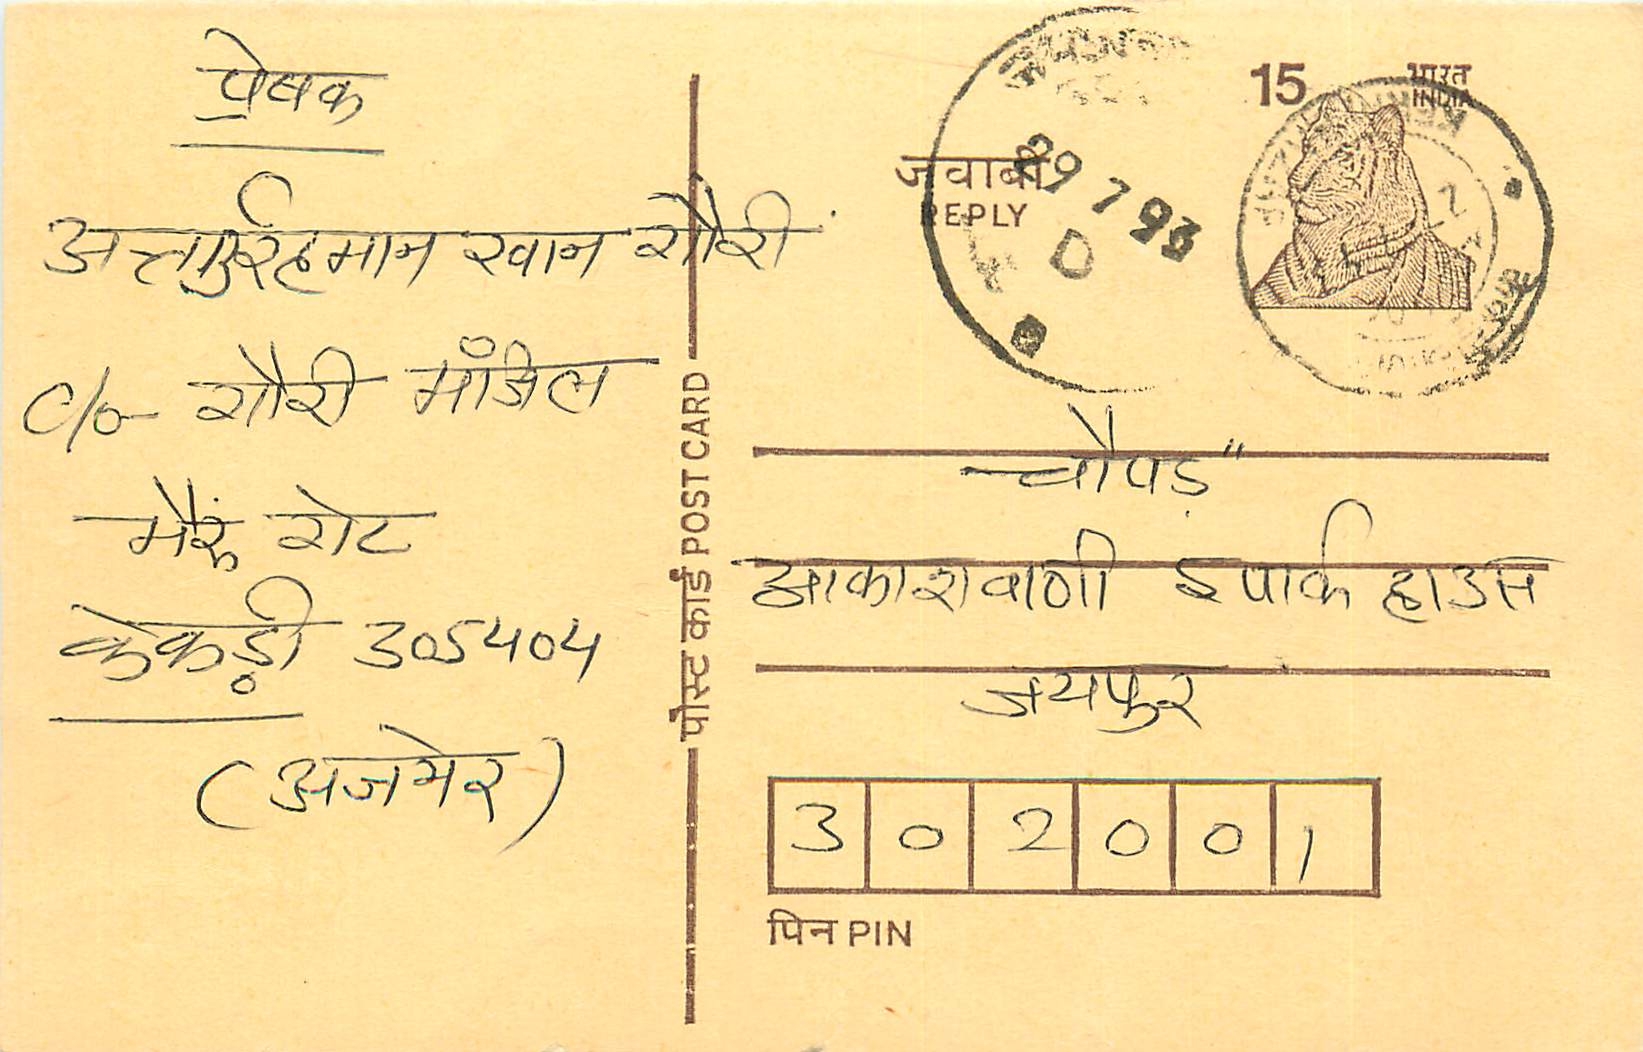 प्रेषक
अत्ताउर्रहमान खान गौरी
C/o- गौरी मंज़िल
भैरूं गेट
केकड़ी 305404
(अजमेर)
पोस्ट कार्ड POST CARD
15 भारत
INDIA
जवाबी
REPLY
29 7 93
D
चौपड़"
आकाशवाणी 5 पार्क हाउस
जयपुर
302001
पिन PIN